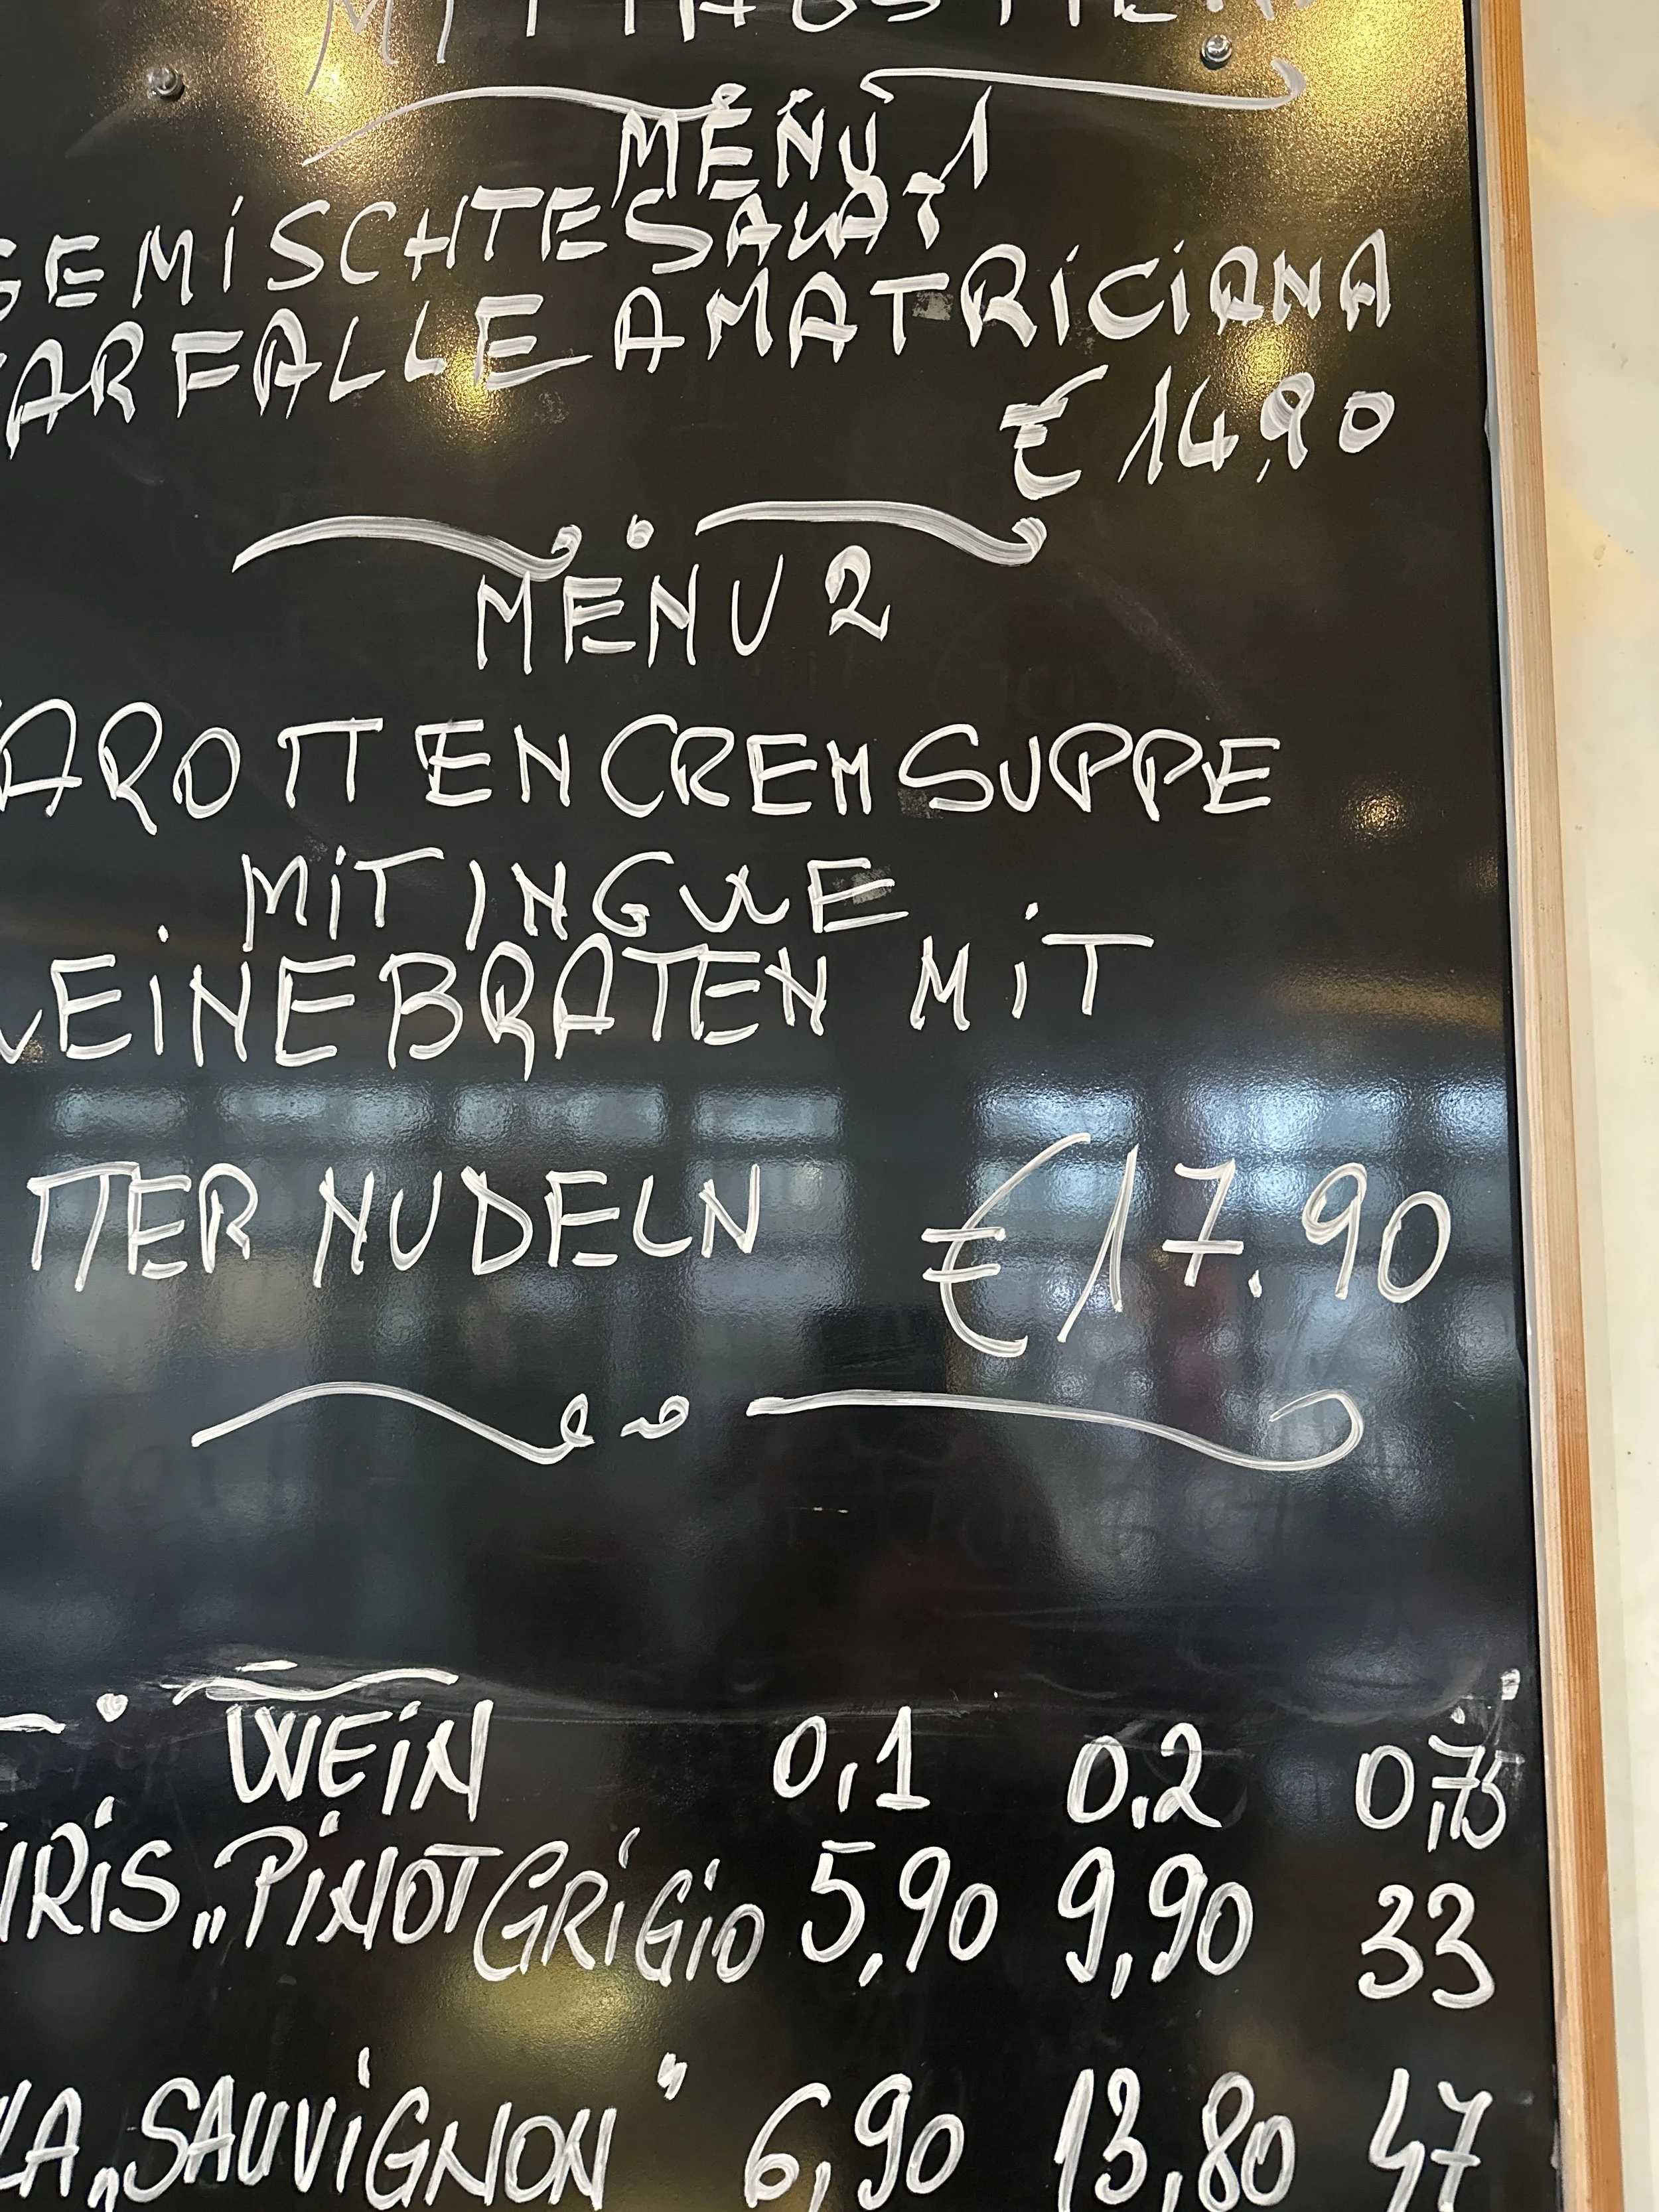 MENÙ 1
GEMISCHTE SALAT
FARFALLE AMATRICIANA
€ 14,90
MENU 2
AROTTENCREMSUPPE
MIT INGWE
EINEBRATEN MIT
TTER NUDELN €17.90
WEIN 0,1 0,2 0,75
IRIS „PINOT GRIGIO 5,90 9,90 33
LA „SAUVIGNON" 6,90 13,80 47